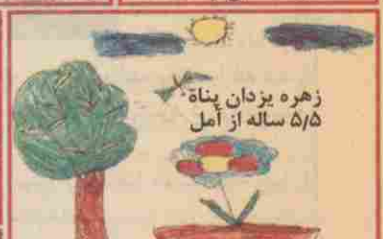 زهره یزدان پناه
۵/۵ ساله از آمل